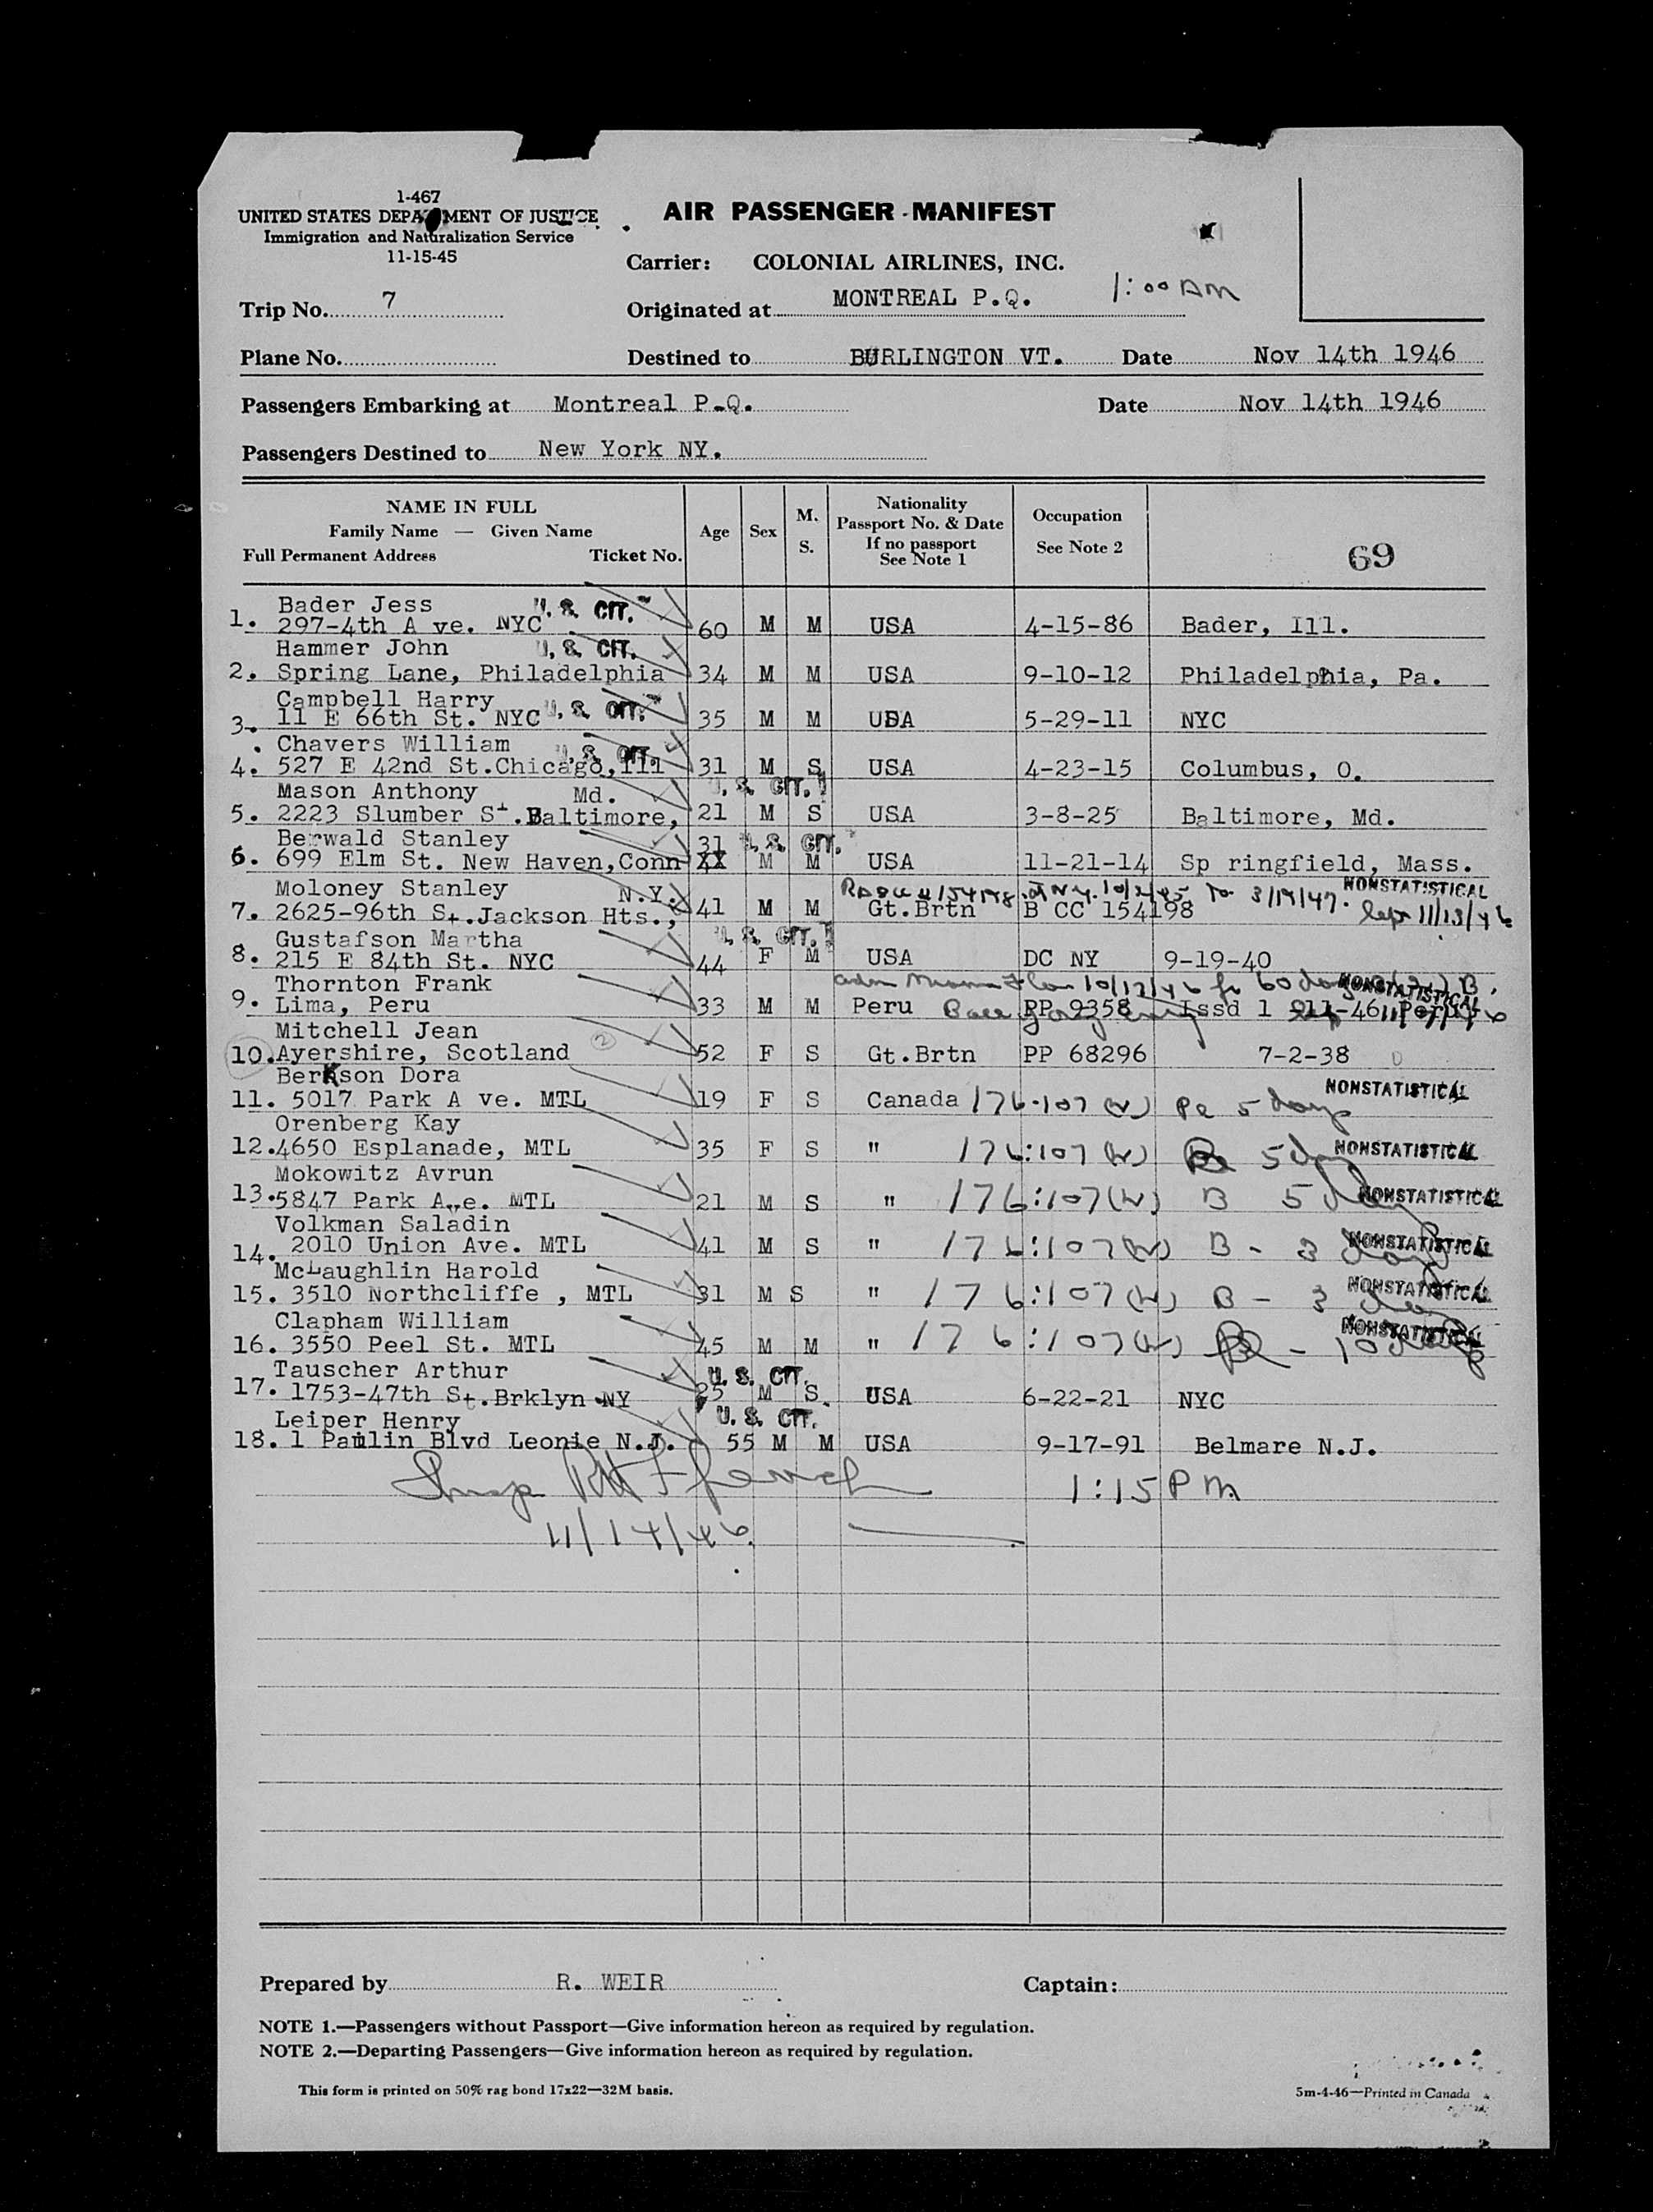 1-467
UNITED STATES DEPA MENT OF JUSTICE
Immigration and Naturalization Service
11-15-45
AIR PASSENGER MANIFEST
Carrier: COLONIAL AIRLINES, INC.
Trip No. 7
Originated at MONTREAL P.Q. 1:00 AM
Plane No.
Destined to BURLINGTON VT. Date Nov 14th 1946
Passengers Embarking at Montreal P.Q. Date Nov 14th 1946
Passengers Destined to New York NY.
NAME IN FULL
Family Name — Given Name
Full Permanent Address Ticket No.
Age
Sex
M.
S.
Nationality
Passport No. & Date
If no passport
See Note 1
Occupation
See Note 2
69
Bader Jess U. S. CIT.
1. 297-4th A ve. NYC 60 M M USA 4-15-86 Bader, Ill.
Hammer John U. S. CIT.
2. Spring Lane, Philadelphia 34 M M USA 9-10-12 Philadelphia, Pa.
Campbell Harry
3. 11 E 66th St. NYC U. S. CIT. 35 M M USA 5-29-11 NYC
Chavers William U. S. CIT.
4. 527 E 42nd St.Chicago,Ill 31 M S USA 4-23-15 Columbus, O.
Mason Anthony Md. U. S. CIT.
5. 2223 Slumber St.Baltimore, 21 M S USA 3-8-25 Baltimore, Md.
Berwald Stanley 31 U. S. CIT.
6. 699 Elm St. New Haven,Conn XX M M USA 11-21-14 Sp ringfield, Mass.
Moloney Stanley N.Y. to 3/19/47. NONSTATISTICAL
7. 2625-96th St.Jackson Hts., 41 M M Gt.Brtn B CC 154198 11/13/46
Gustafson Martha U. S. CIT.
8. 215 E 84th St. NYC 44 F M USA DC NY 9-19-40
Thornton Frank 10/12/46 60 days B. NONSTATISTICAL
9. Lima, Peru 33 M M Peru PP 9358 Issd 1 -46 Peru
Mitchell Jean 2
10. Ayershire, Scotland 52 F S Gt.Brtn PP 68296 7-2-38
Berkson Dora NONSTATISTICAL
11. 5017 Park A ve. MTL 19 F S Canada 176.107 (W) 5 days
Orenberg Kay
12. 4650 Esplanade, MTL 35 F S " 176:107 (W) 5 NONSTATISTICAL
Mokowitz Avrun
13. 5847 Park Ave. MTL 21 M S " 176:107(W) B 5 NONSTATISTICAL
Volkman Saladin
14. 2010 Union Ave. MTL 41 M S " 176:107(W) B - 3 NONSTATISTICAL
McLaughlin Harold
15. 3510 Northcliffe , MTL 31 M S " 176:107(W) B - 3 NONSTATISTICAL
Clapham William
16. 3550 Peel St. MTL 45 M M " 176:107(W) - 10 NONSTATISTICAL
Tauscher Arthur U. S. CIT.
17. 1753-47th St.Brklyn NY 25 M S. USA 6-22-21 NYC
Leiper Henry U. S. CIT.
18. 1 Paulin Blvd Leonie N.J. 55 M M USA 9-17-91 Belmare N.J.
1:15 PM
11/14/46
Prepared by R. WEIR Captain:
NOTE 1.—Passengers without Passport—Give information hereon as required by regulation.
NOTE 2.—Departing Passengers—Give information hereon as required by regulation.
This form is printed on 50% rag bond 17x22—32M basis.
5m-4-46—Printed in Canada